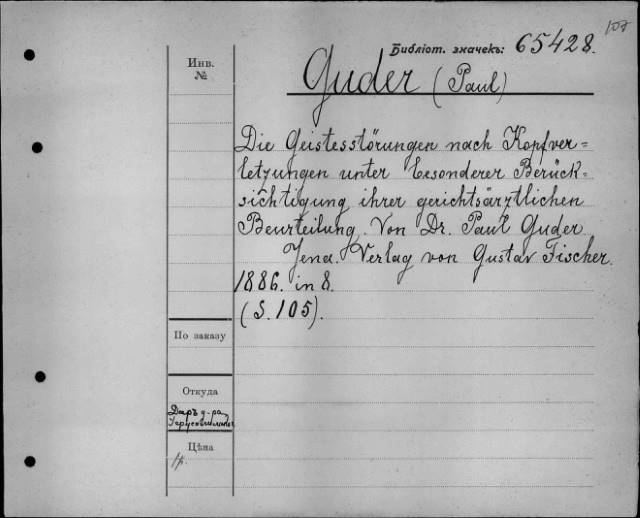 107
Библіот. значекъ: 65428.
Инв.
№
Guder (Paul)
Die Geistesstörungen nach Kopfver=
letzungen unter besonderer Berück=
sichtigung ihrer gerichtsärztlichen
Beurteilung. Von Dr. Paul Guder.
Jena. Verlag von Gustav Fischer.
1886. in 8.
(S. 105).
По заказу
Откуда
Даръ д-ра
Цѣна
1р.